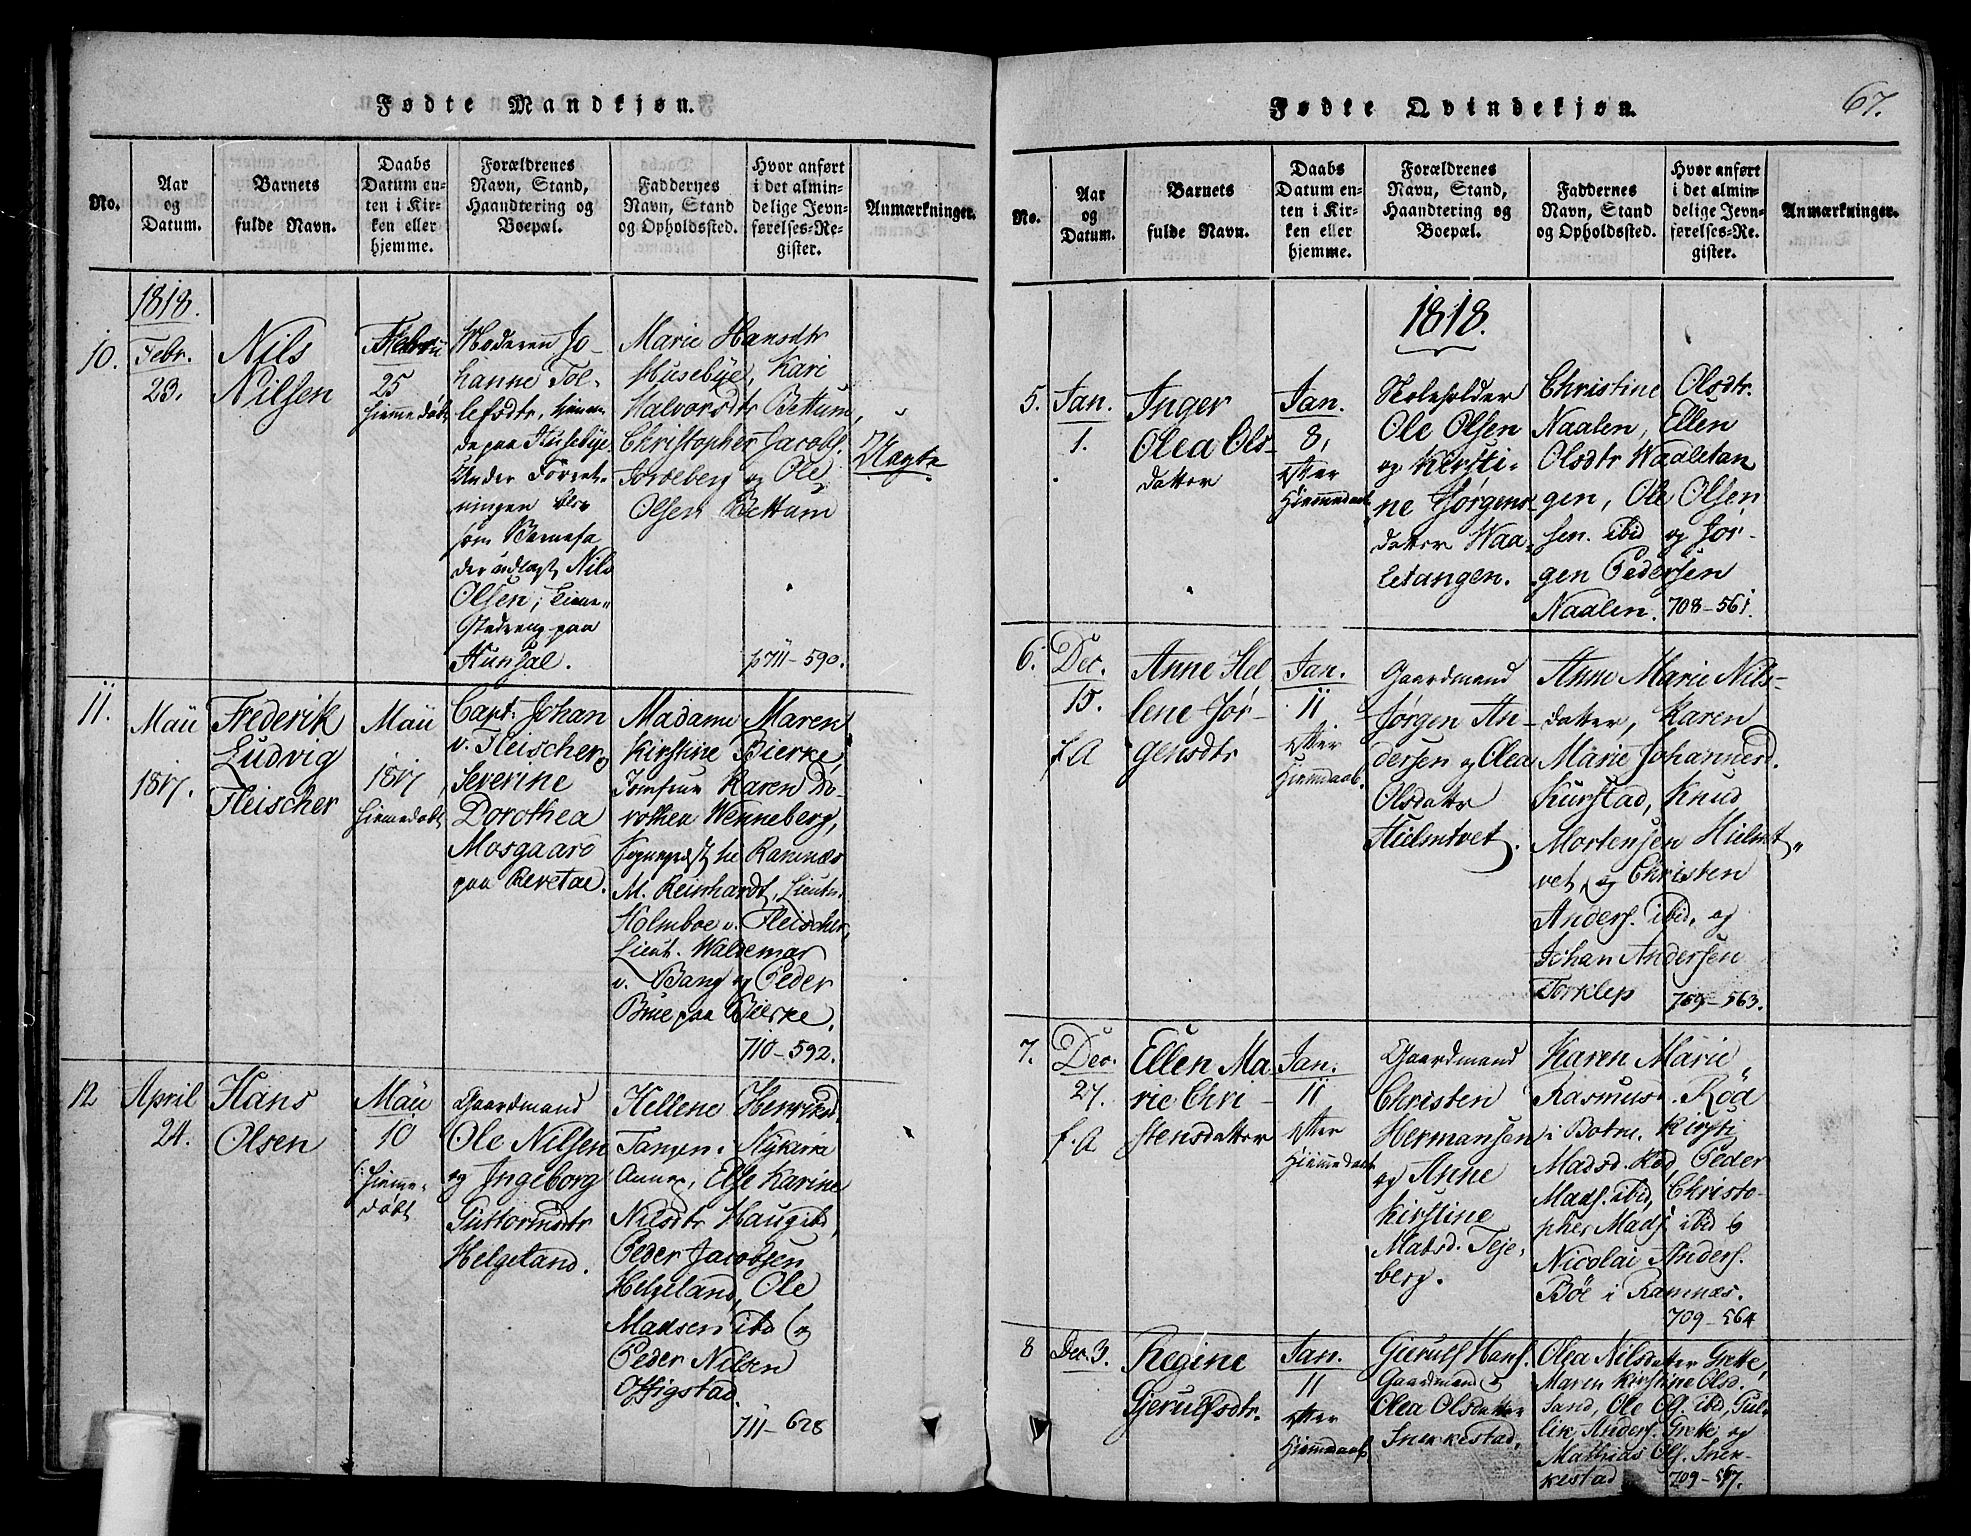 Fødte Mandkjøn.
No.
Aar
og
Datum.
Barnets
fulde Navn.
Daabs
Datum en-
ten i Kir-
ken eller
hjemme.
Forældrenes
Navn, Stand,
Haandtering og
Boepæl.
Faddernes
Navn, Stand
og Opholdssted.
Hvor anført
i det almin-
delige Jevn-
førelses-Re-
gister.
Anmærkninger.
1818.
10.
Febr.
23.
Nils
Nilsen
Febru
25
hiemedøbt
Moderen Jo-
hanne Tol-
lefsdtr, hiemme-
de paa Husebye.
Under Forret-
ningen blev
som Barnefa-
der udlagt Nils
Olsen,
paa
Hunsal.
Marie Hansdtr
Husebye, Kari
Halvorsdtr Bettum,
Christopher Jacobs.
Jordeberg og Ole
Olsen Bettum
p 711-590.
Uægte
11.
Maii
1817.
Frederik
Ludvig
Fleischer
Maii
1817
hiemedøbt
Capt. Johan
v. Fleischer og
Severine
Dorothea
Mosgaard
paa Revetal.
Madame Maren
Kirstine Bierke,
Jomfrue Karen Do-
rothea Wenneberg,
Sognepræst til Ramnæs
M. Reinhardt, Lieutn.
Holmboe v. Fleischer,
Lieut. Waldemar
v. Bang og Peder
Brue paa Bierke.
710-592.
12
April
24.
Hans
Olsen
Maii
10
hieme-
døbt
Gaardmand
Ole Nilsen
og Ingeborg
Guttormsdtr
Helgeland.
Hellene Henriksd.
Tangen. Nykirke
Annex, Else Karine
Nilsdtr Haug ibd,
Peder Jacobsen
Helgeland, Ole
Madsen ibd og
Peder Nilsen
Offigstad.
711-628
Fødte Qvindekjøn.
67.
No.
Aar
og
Datum.
Barnets
fulde Navn.
Daabs
Datum en-
ten i Kir-
ken eller
hjemme.
Forældrenes
Navn, Stand,
Haandtering og
Boepæl.
Faddernes
Navn, Stand
og Opholdssted.
Hvor anført
i det almin-
delige Jevn-
førelses-Re-
gister.
Anmærkninger.
1818.
5.
Jan.
1.
Inger
Olea Ols-
datter
Jan.
8,
efter
Hiemmedaab
Skoleholder
Ole Olsen
og Kirsti-
ne Jørgens-
datter Waa-
letangen.
Christine Olsdtr.
Naalen, Ellen
Olsdtr Waaletan
gen, Ole Olsen
sen. ibid og Jør-
gen Pedersen
Naalen. 708-561.
6.
Dec.
15.
f. A
Anne Hel
lene Jør-
gensdtr
Jan.
11
efter
Hiemdaab.
Gaardmand
Jørgen An-
dersen og Olea
Olsdatter
Hielmtvet.
Anne Marie Nils-
datter, Karen
Marie Johannesd.
Kurstad, Knud
Mortensen Hielmt-
vet, og Christen
Anders. ibid. og
Johan Andersen
Torklep
709-563.
7.
Dec.
27.
f. A
Ellen Ma
rie Chri-
stensdatter
Jan.
11
efter
Hiemmedaab
Gaardmand
Christen
Hermansen
og Anne
Kirstine
Madsd. Teje-
berg.
Karen Marie
Rasmusd. Röd
i Botne. Kirsti
Madsd. Röd, Peder
Mads. ibid, Christo-
pher Mads. ibid og
Nicolai Anders.
Böe i Ramnæs.
709-564
8
Dec. 3.
Regine
Gjerulfsdtr.
Jan.
11
efter
Hiemmedaab
Gierulf Hans.
Gaardmand og
Olea Olsdatter
Snerkestad,
Olea Nilsdatter Grette,
Maren Kirstine Olsd.
Sand, Ole Ol. ibid, Gul-
lik Anders. Grette og
Mathias Ols. Sner-
kestad 709-567.